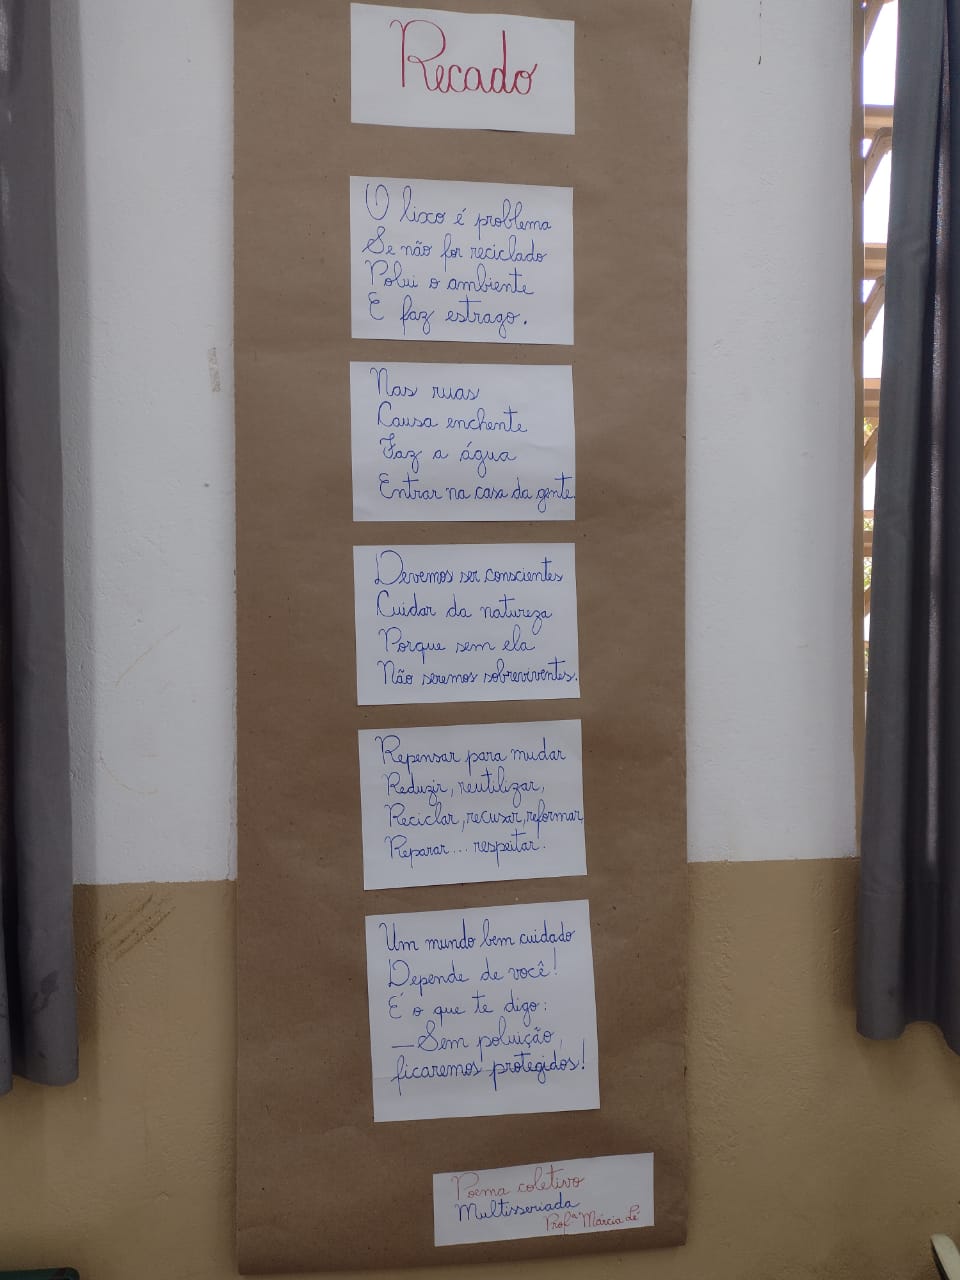 Recado
O lixo é problema
Se não for reciclado
Polui o ambiente
E faz estrago.
Nas ruas
Causa enchente
Faz a água
Entrar na casa da gente.
Devemos ser conscientes
Cuidar da natureza
Porque sem ela
Não seremos sobreviventes.
Repensar para mudar
Reduzir, reutilizar,
Reciclar, recusar, reformar,
Reparar... respeitar!
Um mundo bem cuidado
Depende de você!
É o que te digo:
—Sem poluição,
ficaremos protegidos!
Poema coletivo
Multisseriada
Profª Márcia Lé